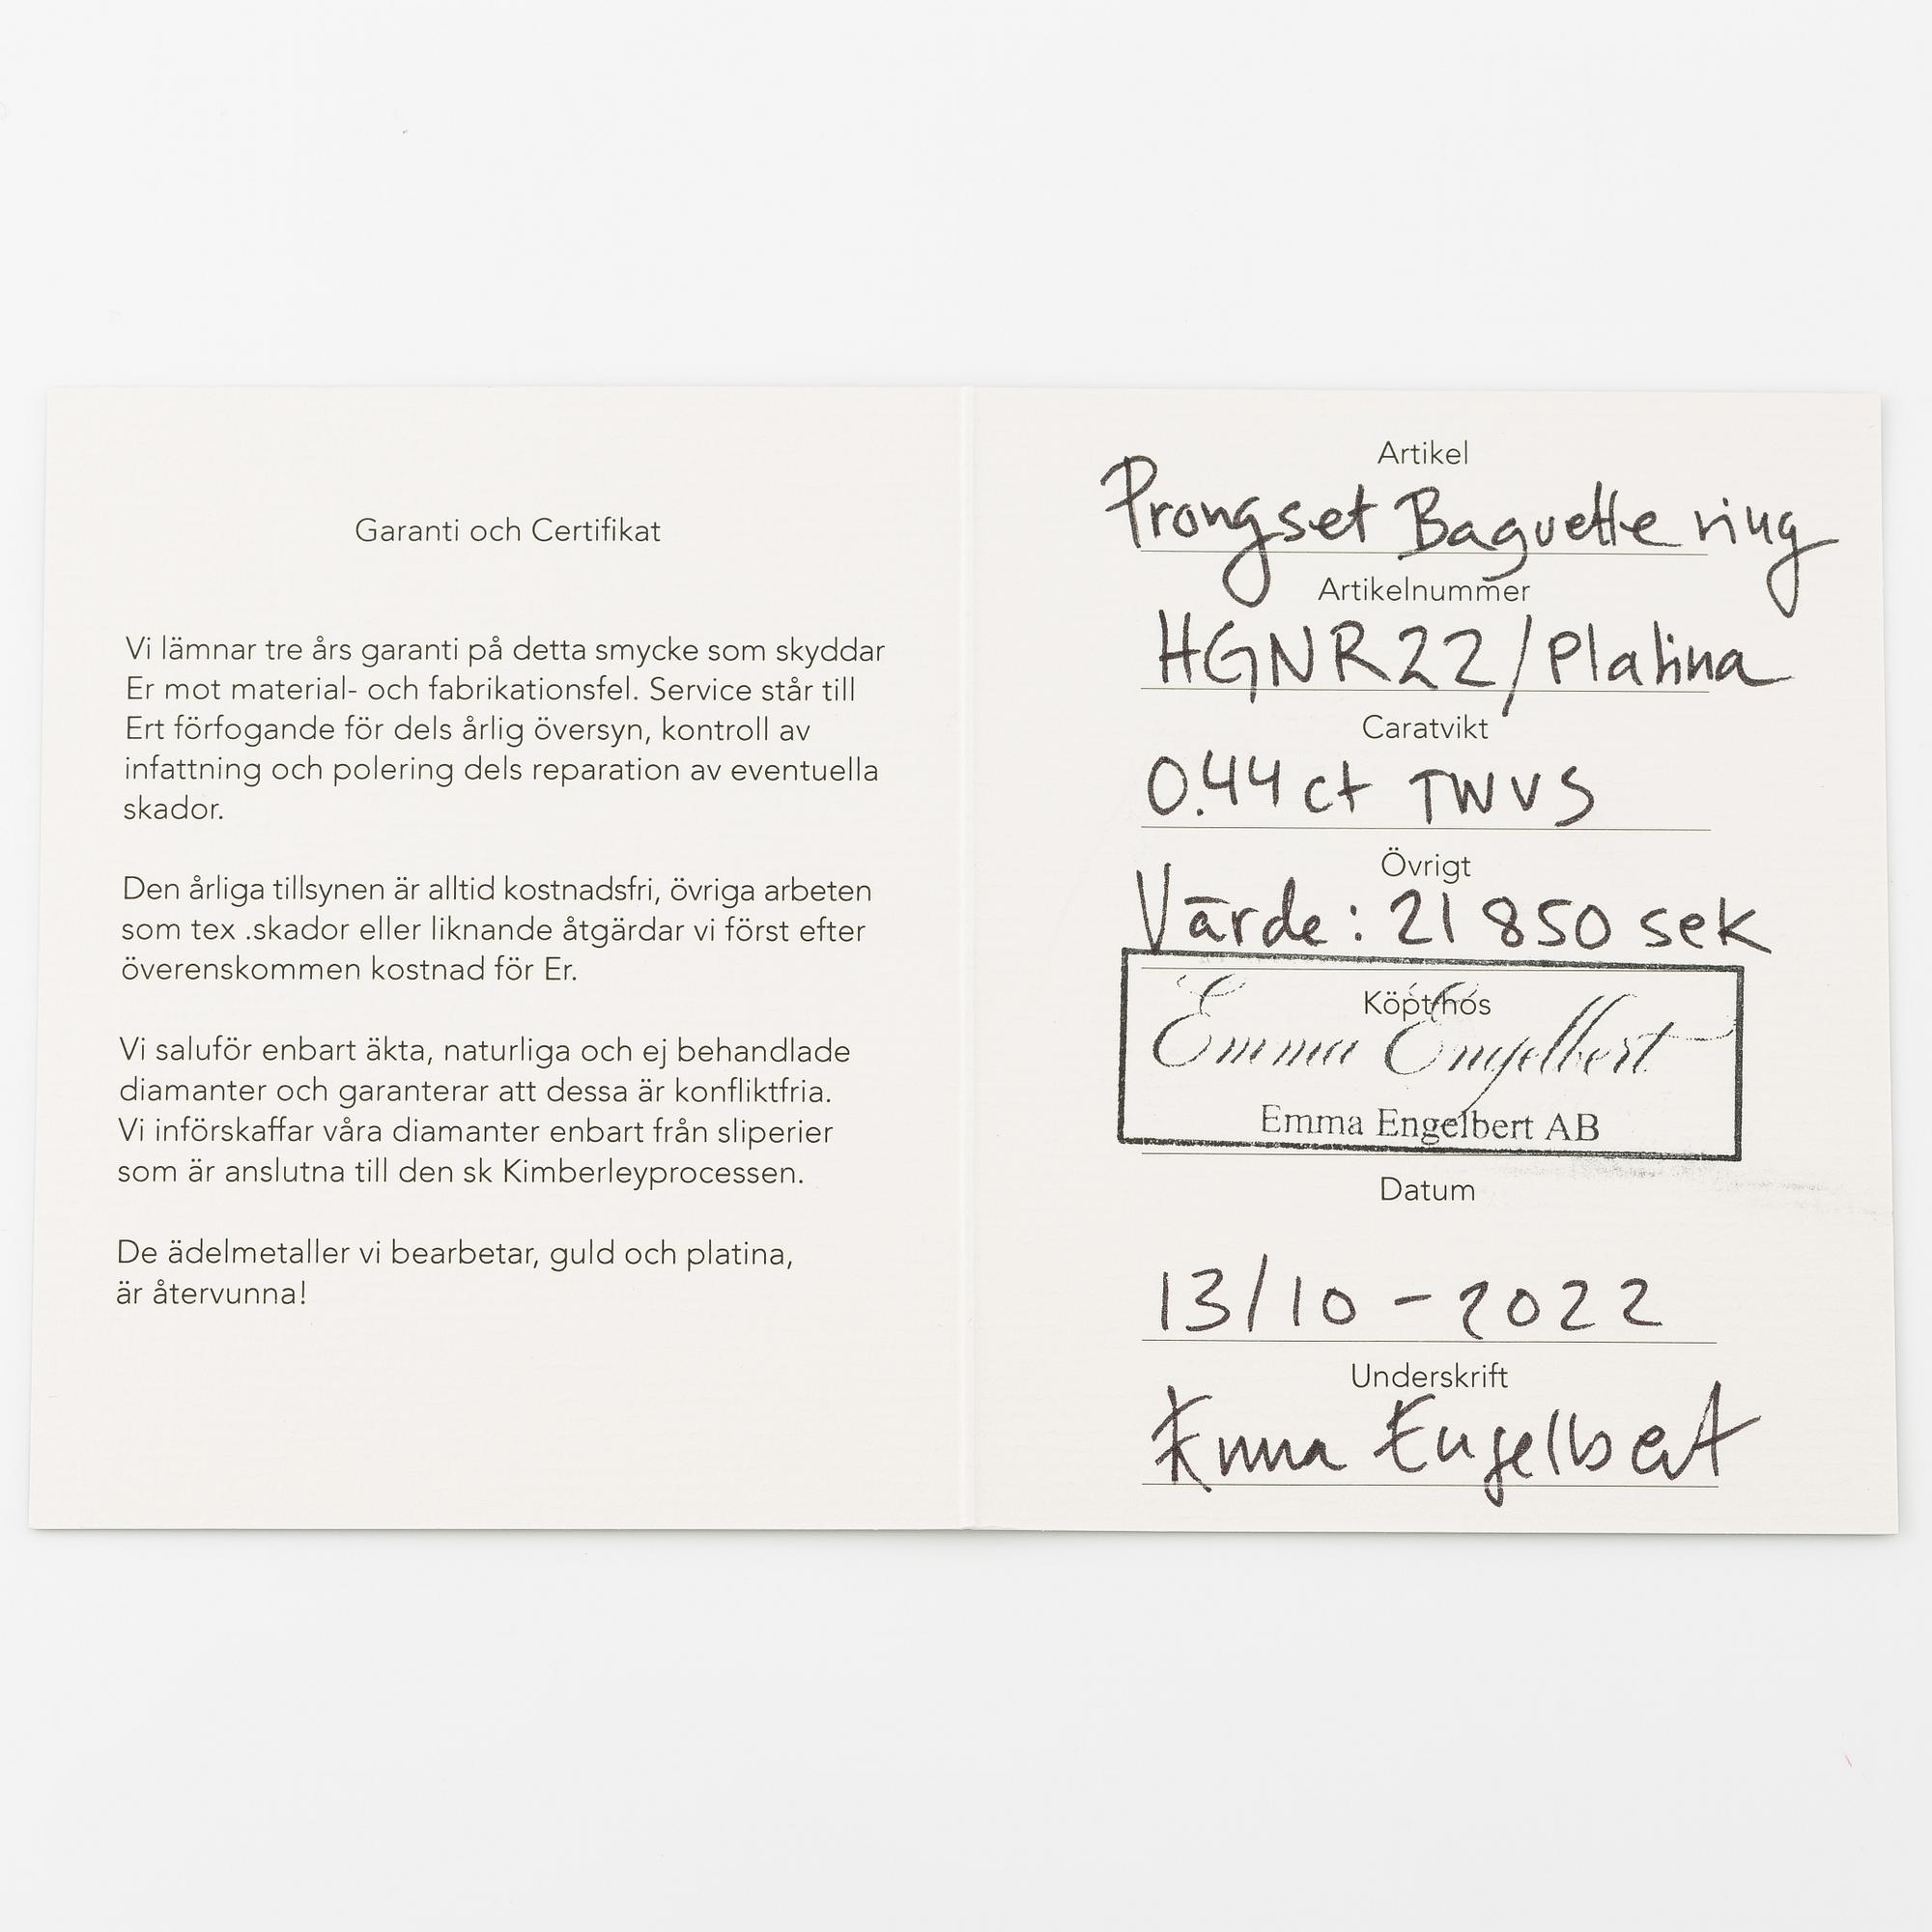 Garanti och Certifikat
Vi lämnar tre års garanti på detta smycke som skyddar
Er mot material- och fabrikationsfel. Service står till
Ert förfogande för dels årlig översyn, kontroll av
infattning och polering dels reparation av eventuella
skador.
Den årliga tillsynen är alltid kostnadsfri, övriga arbeten
som tex .skador eller liknande åtgärdar vi först efter
överenskommen kostnad för Er.
Vi saluför enbart äkta, naturliga och ej behandlade
diamanter och garanterar att dessa är konfliktfria.
Vi införskaffar våra diamanter enbart från sliperier
som är anslutna till den sk Kimberleyprocessen.
De ädelmetaller vi bearbetar, guld och platina,
är återvunna!
Artikel
Prongset Baguette ring
Artikelnummer
HGNR22/Platina
Caratvikt
0.44 ct TWVS
Övrigt
Värde: 21 850 sek
Köpt hos
Emma Engelbert
Emma Engelbert AB
Datum
13/10-2022
Underskrift
Emma Engelbert